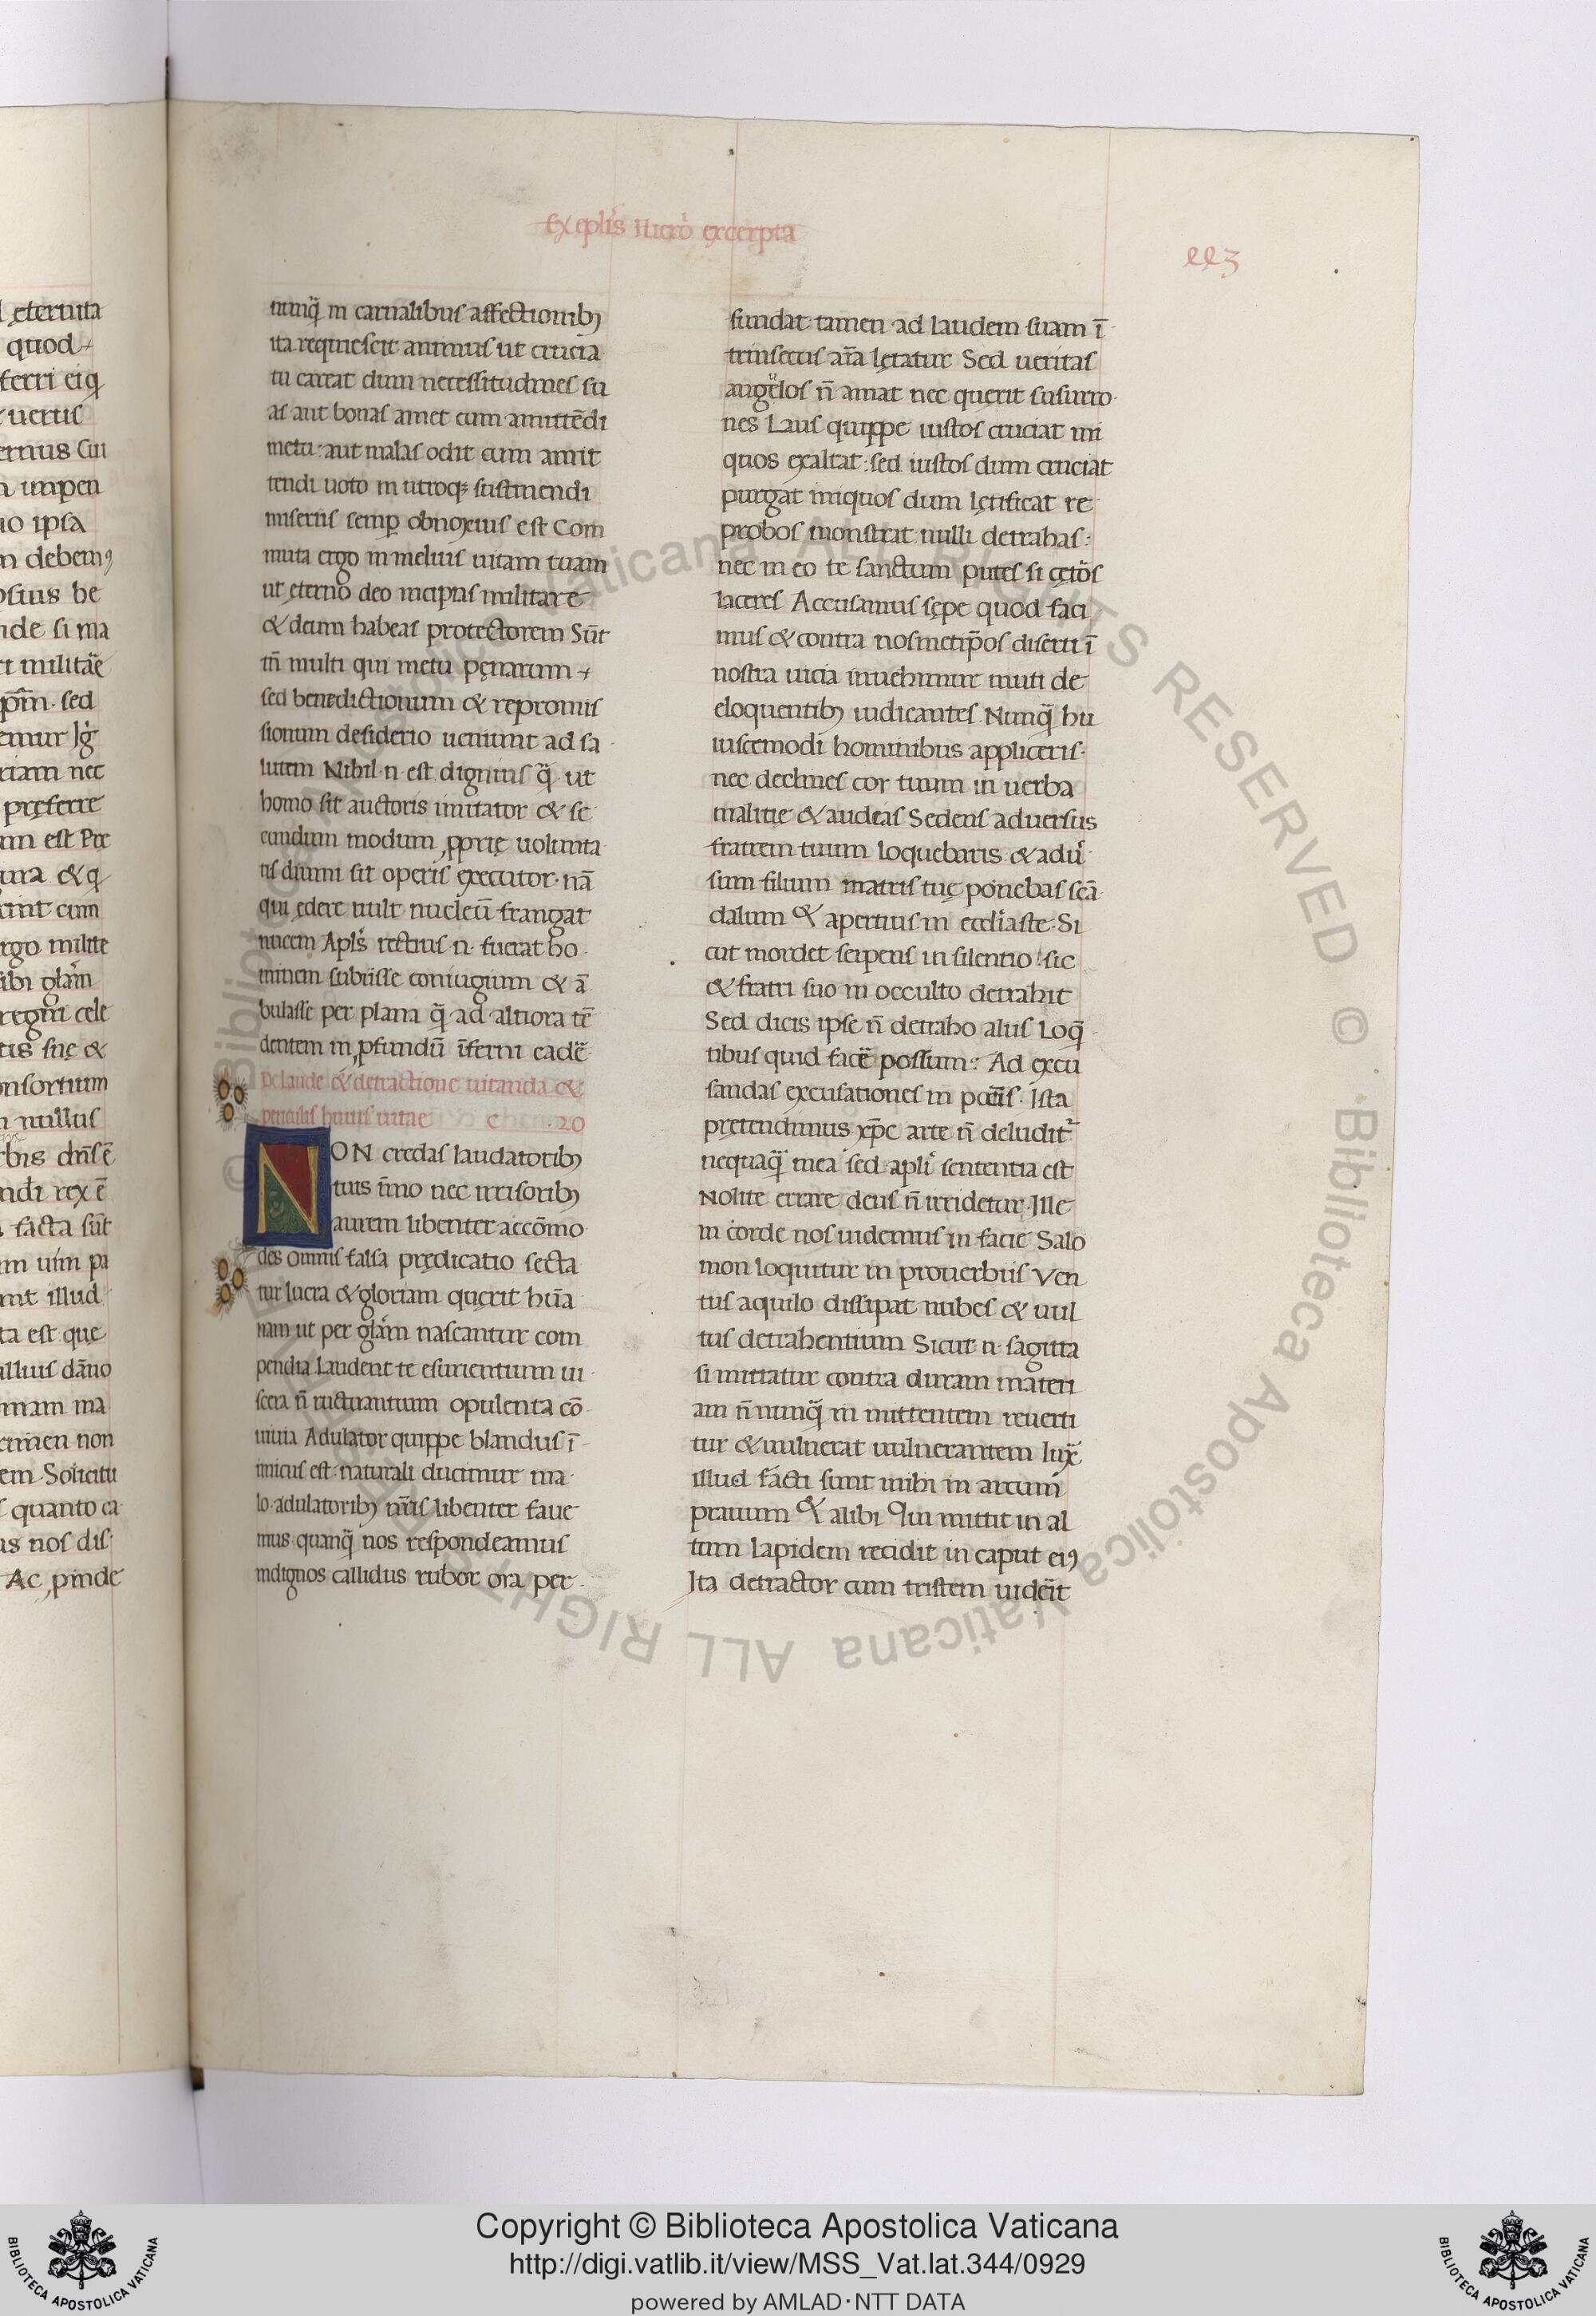 Ex eplis Hiero excerpta
223
ęternita
quod
ferri ei q̨
uertis
ernus Cui
impen
ipsa
debemꝰ
sius be
de si ma
militare
sed
emur Ig̃
riam nec
pręferre
am est Pre
ura & q̨
cum
rgo milite
ibi glãm
regni cele
tis suę &
onsortium
nullus
bis dns̃ ẽ
ndi rex ẽ
facta sũt
m uim pa
illud
ta est que
illius dãno
mam ma
crimen non
em Solicitu
quanto ca
as nos dis
Ac ꝓinde
nunq̃ in carnalibus affectionibꝫ
ita requiescit animus ut crucia
tu careat dum necessitudines su
as aut bonas amet cum amittẽdi
metu: aut malas odit cum amit
tendi uoto in utroqꝫ sustinendi
miseriis semꝑ obnoxius est Com
muta ergo in melius uitam tuam
ut ęterno deo incipias militare
& deum habeas protectorem Sũt
tñ multi qui metu pęnarum
sed benedictionum & repromis
sionum desiderio ueniunt ad sa
lutem Nihil·n·est dignius q̃ ut
homo sit auctoris imitator & se
cundum modum ꝓprię uolunta
tis diuini sit operis executor·nã
qui ędere uult nucleũ frangat
nucem Apls̃ rectius n· fuerat ho
minem subiisse coniugium & ã
bulasse per plana q̃ ad altiora tẽ
dentem in ꝓfundũ ĩferni cadẽ
De laude & detractione uitanda &
periculis huius uitae c 20
NON credas laudatoribꝫ
tuis ĩmo nec irrisoribꝫ
aurem libenter accõmo
des Omnis falsa prędicatio secta
tur lucra & gloriam quęrit hũa
nam ut per glãm nascantur com
pendia Laudent te esurientium ui
scera ñ ructuantium opulenta cõ
uiuia Adulator quippe blandus ĩ
imicus est: naturali ducimur ma
lo·adulatoribꝫ nr̃is libenter faue
mus quanq̃ nos respondeamus
indignos callidus rubor ora per
fundat: tamen ad laudem suam ĩ
trinsecus aĩa lętatur Sed ueritas
angelos ñ amat nec quęrit susurro
nes Laus quippe iustos cruciat ini
quos exaltat: sed iustos dum cruciat
purgat iniquos dum lętificat re
probos monstrat nulli detrahas:
nec in eo te sanctum putes si cętos̃
laceres Accusamus sępe quod faci
mus & contra nosmetip̃os diserti ĩ
nostra uicia inuehimur muti de
eloquentibꝫ iudicantes Nunq̃ hu
iuscemodi hominibus appliceris·
nec declines cor tuum in uerba
malitie & audias Sedens aduersus
fratrem tuum loquebaris & adũ
sum filium matris tuę ponebas scã
dalum & apertius in ecclĩaste: Si
cut mordet serpens in silentio: sic
& fratri suo in occulto detrahit
Sed dicis ipse ñ detraho aliis Loq̃
tibus quid facẽ possum: Ad excu
sandas excusationes in pcc̃is· Ista
pretendimus xp̃c arte ñ deludit̃
nequaq̃ mea sed apli sententia est
Nolite errare deus ñ irridetur Ille
in corde nos uidemus in facie Salo
mon loquitur in prouerbiis Ven
tus aquilo dissipat nubes & uul
tus detrahentium Sicut·n·sagitta
si mittatur contra duram materi
am ñ nunq̃ in mittentem reuerti
tur & uulnerat uulnerantem iux̃
illud facti sunt mihi in arcum
prauum & alibi Qui mittit in al
tum lapidem recidit in caput eiꝰ
Ita detractor cum tristem uidẽit
© Biblioteca Apostolica Vaticana ALL RIGHTS RESERVED © Biblioteca Apostolica Vaticana ALL RIGHTS RESERVED
Copyright © Biblioteca Apostolica Vaticana
http://digi.vatlib.it/view/MSS_Vat.lat.344/0929
powered by AMLAD·NTT DATA
BIBLIOTECA APOSTOLICA VATICANA
BIBLIOTECA APOSTOLICA VATICANA